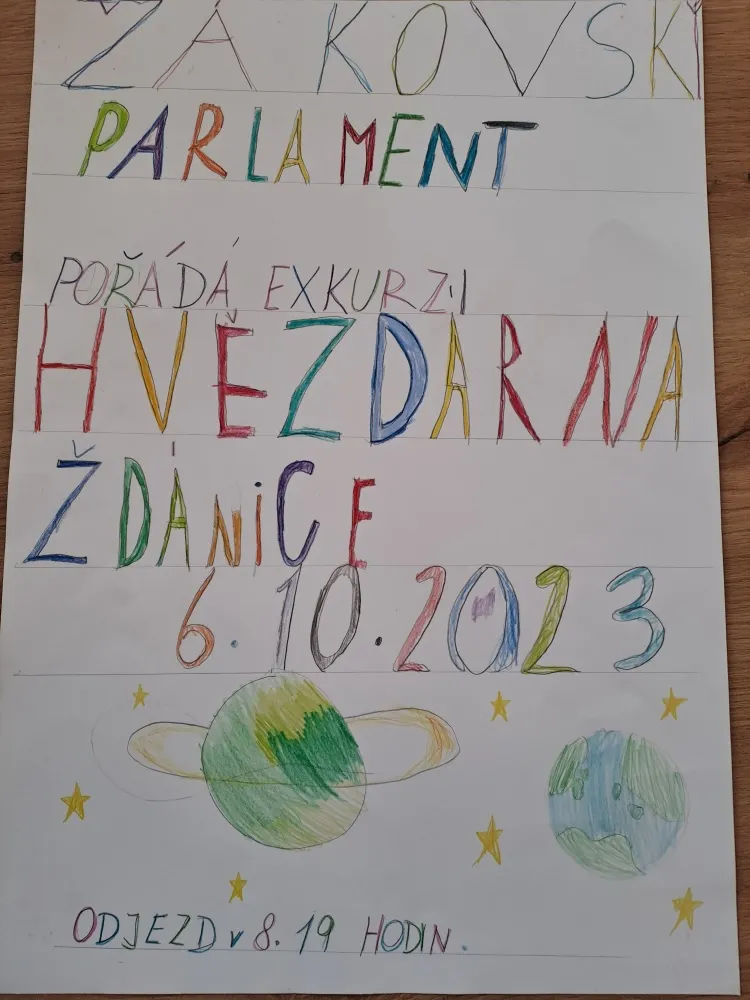 ŽÁKOVSKÝ
PARLAMENT
POŘÁDÁ EXKURZI
HVĚZDARNA
ŽDÁNiCE
6.10.2023
ODJEZD v 8.19 HODIN.